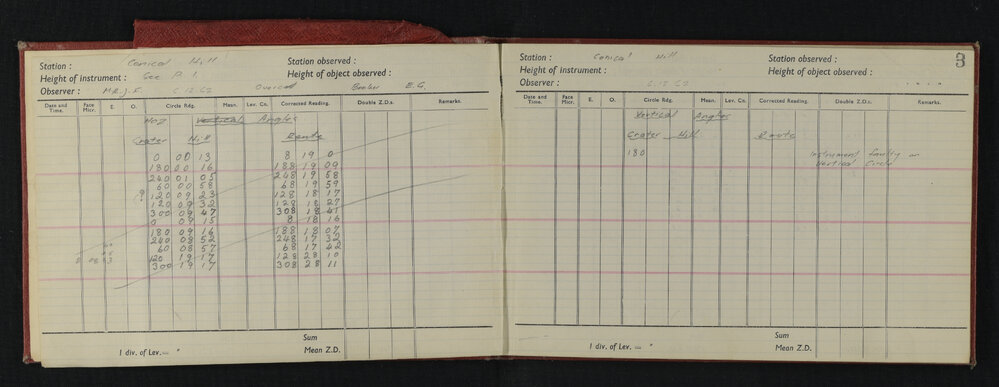 Station : Conical Hill Station observed :
Height of instrument : See P. 1. Height of object observed :
Observer : M.R.J.F. 6.12.62 Overcast Booker E.G.
Date and Time. Face Micr. E. O. Circle Rdg. Mean. Lev. Co. Corrected Reading. Double Z.D.s. Remarks.
Hoz Vertical Angles
Crater Hill Beaute
0 00 13 8 19 0
180 00 16 188 19 09
240 01 05 248 19 58
60 00 58 68 19 59
? 120 09 23 128 18 17
120 09 32 128 18 27
300 09 47 308 18 41
0 09 15 8 18 16
180 09 16 188 18 07
240 08 52 248 17 32
60 08 57 68 17 42
120 19 17 128 28 10
300 19 17 308 28 11
Sum
1 div. of Lev. = " Mean Z.D.
3
Station : Conical Hill Station observed :
Height of instrument : Height of object observed :
Observer : 6.12.62
Date and Time. Face Micr. E. O. Circle Rdg. Mean. Lev. Co. Corrected Reading. Double Z.D.s. Remarks.
Vertical Angles
Crater Hill Beaute
180 Instrument faulty on
Vertical Circle
Sum
1 div. of Lev. = " Mean Z.D.